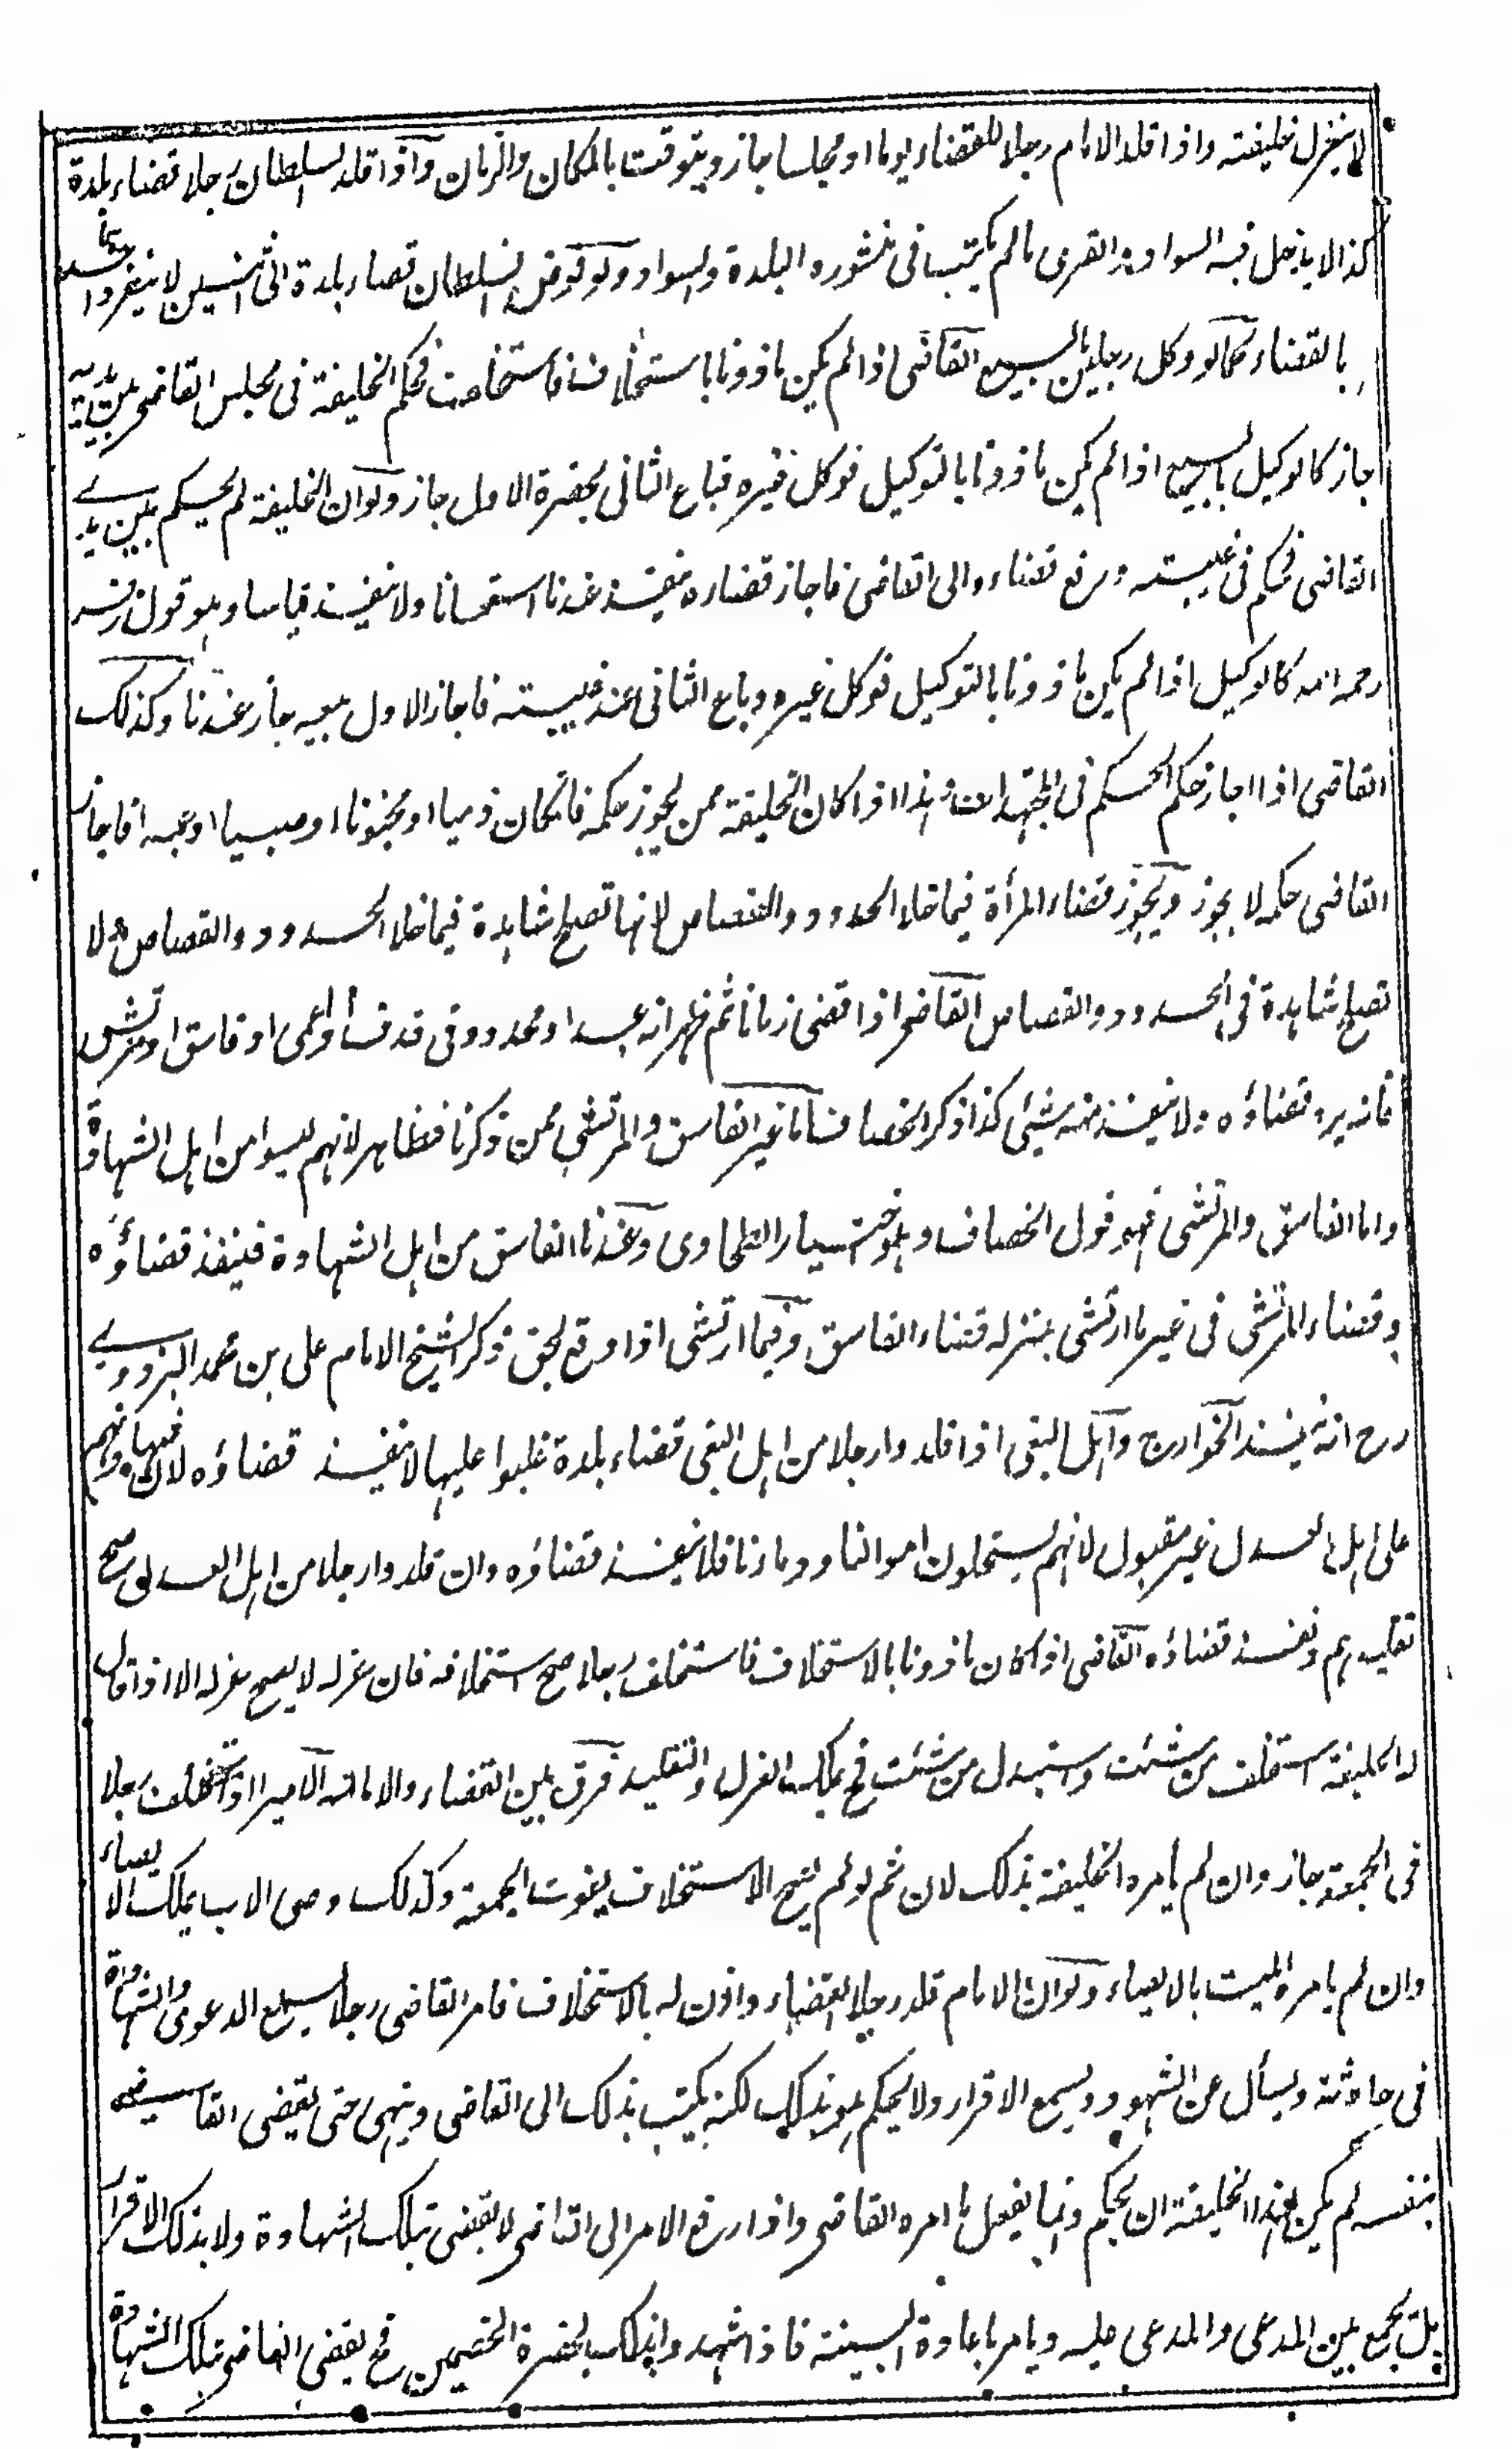 لا ينعزل خليفته واذا قلد الامام رجلا للقضاء يوما او مجلسا جاز ويتوقت بالمكان والزمان واذا قلد السلطان رجلا قضاء بلدة
كذا لا يدخل فيه السواد والقرى ما لم يكتب فى منشوره البلدة والسواد ولو فوض السلطان قضاء بلدة الى اثنين لا ينفرد احدهما
بالقضاء كما لو وكل رجلين بالبيع القاضى اذا لم يكن ماذونا باستخلاف فاستخلف فحكم الخليفة فى مجلس القاضى بين يديه
جاز كالوكيل بالبيع اذا لم يكن ماذونا بالتوكيل فوكل غيره فباع الثانى بحضرة الاول جاز ولو ان الخليفة لم يحكم بين يدے
القاضى فحكم فى غيبته ورفع قضاءه الى القاضى فاجاز قضاءه ينفذ عندنا استحسانا ولا ينفذ قياسا وهو قول زفر
رحمه الله كالوكيل اذا لم يكن ماذونا بالتوكيل فوكل غيره وباع الثانى عند غيبته فاجاز الاول بيعه جاز عندنا وكذلك
القاضى اذا اجاز حكم الحكم فى المجتهدات وهذا اذا كان الخليفة ممن يجوز حكمه فان كان ذميا او مجنونا او صبيا او عبدا فاجاز
القاضى حكمه لا يجوز ويجوز قضاء المرأة فيما خلا الحدود والقصاص لانها تصلح شاهدة فيما خلا الحدود والقصاص ولا
تصلح شاهدة فى الحدود والقصاص القاضى اذا قضى زمانا ثم ظهر انه عبد او محدود فى قذف او اعمى او فاسق او مرتش
فانه يرد قضاؤه ولا ينفذ منه شئى كذا ذكر الخصاف اما غير الفاسق والمرتشى ممن ذكرنا فظاهر لانهم ليسوا من اهل الشهادة
واما الفاسق والمرتشى فهو قول الخصاف وهو اختيار الطحاوى وعندنا الفاسق من اهل الشهادة فينفذ قضاؤه
وقضاء المرتشى فى غير ما ارتشى بمنزلة قضاء الفاسق وفيما ارتشى اذا وقع بحق ذكر الشيخ الامام على بن محمد البزدوے
رح انه ينفذ الخوارج واهل البغى اذا قلدوا رجلا من اهل البغى قضاء بلدة غلبوا عليها لا ينفذ قضاؤه لان شهادتهم
على اهل العدل غير مقبول لانهم يستحلون اموالنا ودمائنا فلا ينفذ قضاؤه وان قلدوا رجلا من اهل العدل صح
تقليدهم ونفذ قضاؤه القاضى اذا كان ماذونا بالاستخلاف فاستخلف رجلا صح استخلافه فان عزله لا يصح عزله الا اذا قال
له الخليفة استخلف من شئت واستبدل من شئت فح يملك العزل والتقليد فرق بين القضاء والامامة الامير اذا استخلف رجلا
فى الجمعة جاز وان لم يأمره الخليفة بذلك لان ثم لو لم يصح الاستخلاف يفوت الجمعة وكذلك وصى الاب يملك الايصاء
وان لم يامره الميت بالايصاء ولو ان الامام قلد رجلا القضاء واذن له بالاستخلاف فامر القاضى رجلا يسمع الدعوى والشهادة
فى حادثة ويسأل عن الشهود ويسمع الاقرار ولا يحكم هو بذلك لكنه يكتب بذلك الى القاضى وينهى حتى يقضى القاضى
بنفسه لم يكن لهذا الخليفة ان يحكم وانما يفعل ما امره القاضى واذا رفع الامر الى القاضى لا يقضى بتلك الشهادة ولا بذلك الاقرار
بل يجمع بين المدعى والمدعى عليه ويامر باعادة البينة فاذا شهدوا بذلك بحضرة الخصمين فح يقضى القاضى بتلك الشهادة